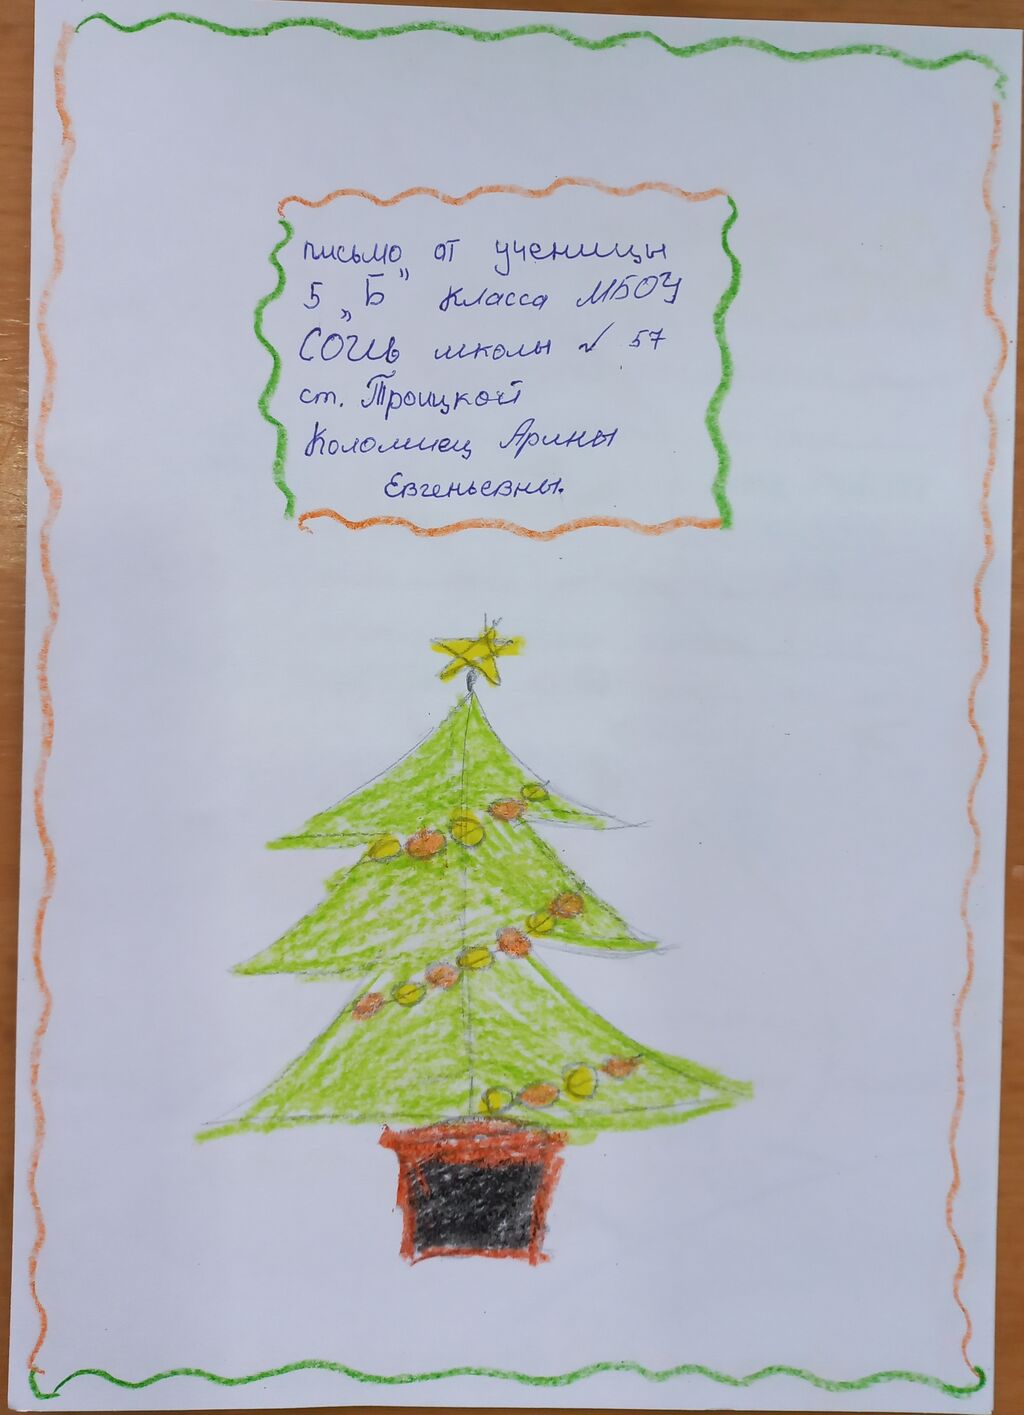 письмо от ученицы
5 „Б" класса МБОУ
СОШ школы № 57
ст. Троицкой
Коломиец Арины
Евгеньевны.